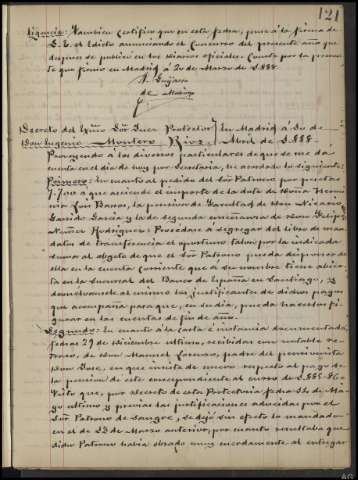 121
Diligencia: También certifico que en esta fecha, puse á la firma de
S. E. el Edicto anunciando el Concurso del presente año que
dispuso se publica en los Diarios oficiales. Consta por la presen-
te que firmo en Madrid á 20 de Marzo de 1.888.
de
Decreto del Exmo Sor Juez Protector En Madrid á 30 de
Don Eugenio Montero Rios. Abril de 1.888.
Proveyendo á los diversos particulares de que se me da
cuenta en el dia de hoy por Secretaria, he acordado lo siguiente:
Primero: En cuanto al pedido del Sor Patrono por pesetas
á que asciende el importe de la dote de Doña Hermi-
nia Pou Baros, la pension de Facultad de Don Nicasio
Garcia y la de segunda enseñanza de Don Felipe
Nuñez Rodriguez: Procédase á segregar del libro de man-
datos de transferencia el oportuno talon por la indicada
suma al objeto de que el Sor Patrono pueda disponer de
ella en la cuenta corriente que á su nombre tiene abier-
ta en la Sucursal del Banco de España en Santiago, y
devuelvansele al mismo los justificantes de dichos pagos
que acompaña para que, en su dia, pueda hacerlos fi-
gurar en las cuentas de fin de año.
Segundo: En cuanto á la carta é instancia documentada,
fechas 29 de Diciembre ultimo, recibidas con notable re-
traso, de Don Manuel Lorenzo, padre del pensionista
Don José, en que insiste de nuevo respecto al pago de
la pension de este correspondiente al curso de 1.885-86.
Visto que, por decreto de esta Protectoria fecha 31 de Ma-
yo ultimo y previas las justificaciones aducidas por el
Sor Patrono de Sangre, se dejó sin efecto lo mandado
en el de 23 de Marzo anterior, por cuanto resultaba que
dicho Patrono habia obrado muy cuerdamente al entregar